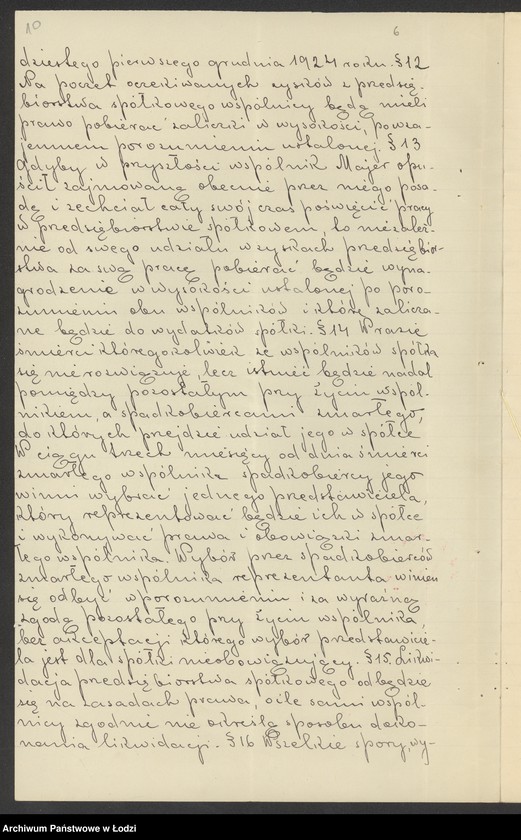 10
6
dziestego pierwszego grudnia 1924 roku. §12
Na poczet oczekiwanych zysków z przedsię-
biorstwa spółkowego wspólnicy będą mieli
prawo pobierać zaliczki w wysokości, powza-
jemnem porozumieniu ustalonej. §13
Gdyby w przyszłości wspólnik Majer opu-
ścił zajmowaną obecnie przez niego posa-
dę i zechciał cały swój czas poświęcić pracy
w przedsiębiorstwie spółkowem, to niezależ-
nie od swego udziału w zyskach przedsiębior-
stwa za swą pracę pobierać będzie wyna-
grodzenie w wysokości ustalonej po poro-
zumieniu obu wspólników i które zalicza-
ne będzie do wydatków spółki. §14 W razie
śmierci któregokolwiek ze wspólników spółka
się nierozwiązuje, lecz istnieć będzie nadal
pomiędzy pozostałym przy życiu wspól-
nikiem, a spadkobiercami zmarłego,
do których przejdzie udział jego w spółce
W ciągu trzech miesięcy od dnia śmierci
zmarłego wspólnika spadkobiercy jego
winni wybrać jednego przedstawiciela,
który reprezentować będzie ich w spółce
i wykonywać prawa i obowiązki zmar-
łego wspólnika. Wybór przez spadkobierców
zmarłego wspólnika reprezentanta winien
się odbyć w porozumieniu i za wyraźną
zgodą pozostałego przy życiu wspólnika,
bez akceptacji którego wybór przedstawicie-
la jest dla spółki nieobowiązujący. §15. Likwi-
dacja przedsiębiorstwa spółkowego odbędzie
się na zasadach prawa, o ile sami wspól-
nicy zgodnie nie określą sposobu doko-
nania likwidacji. §16 Wszelkie spory, wy-
Archiwum Państwowe w Łodzi